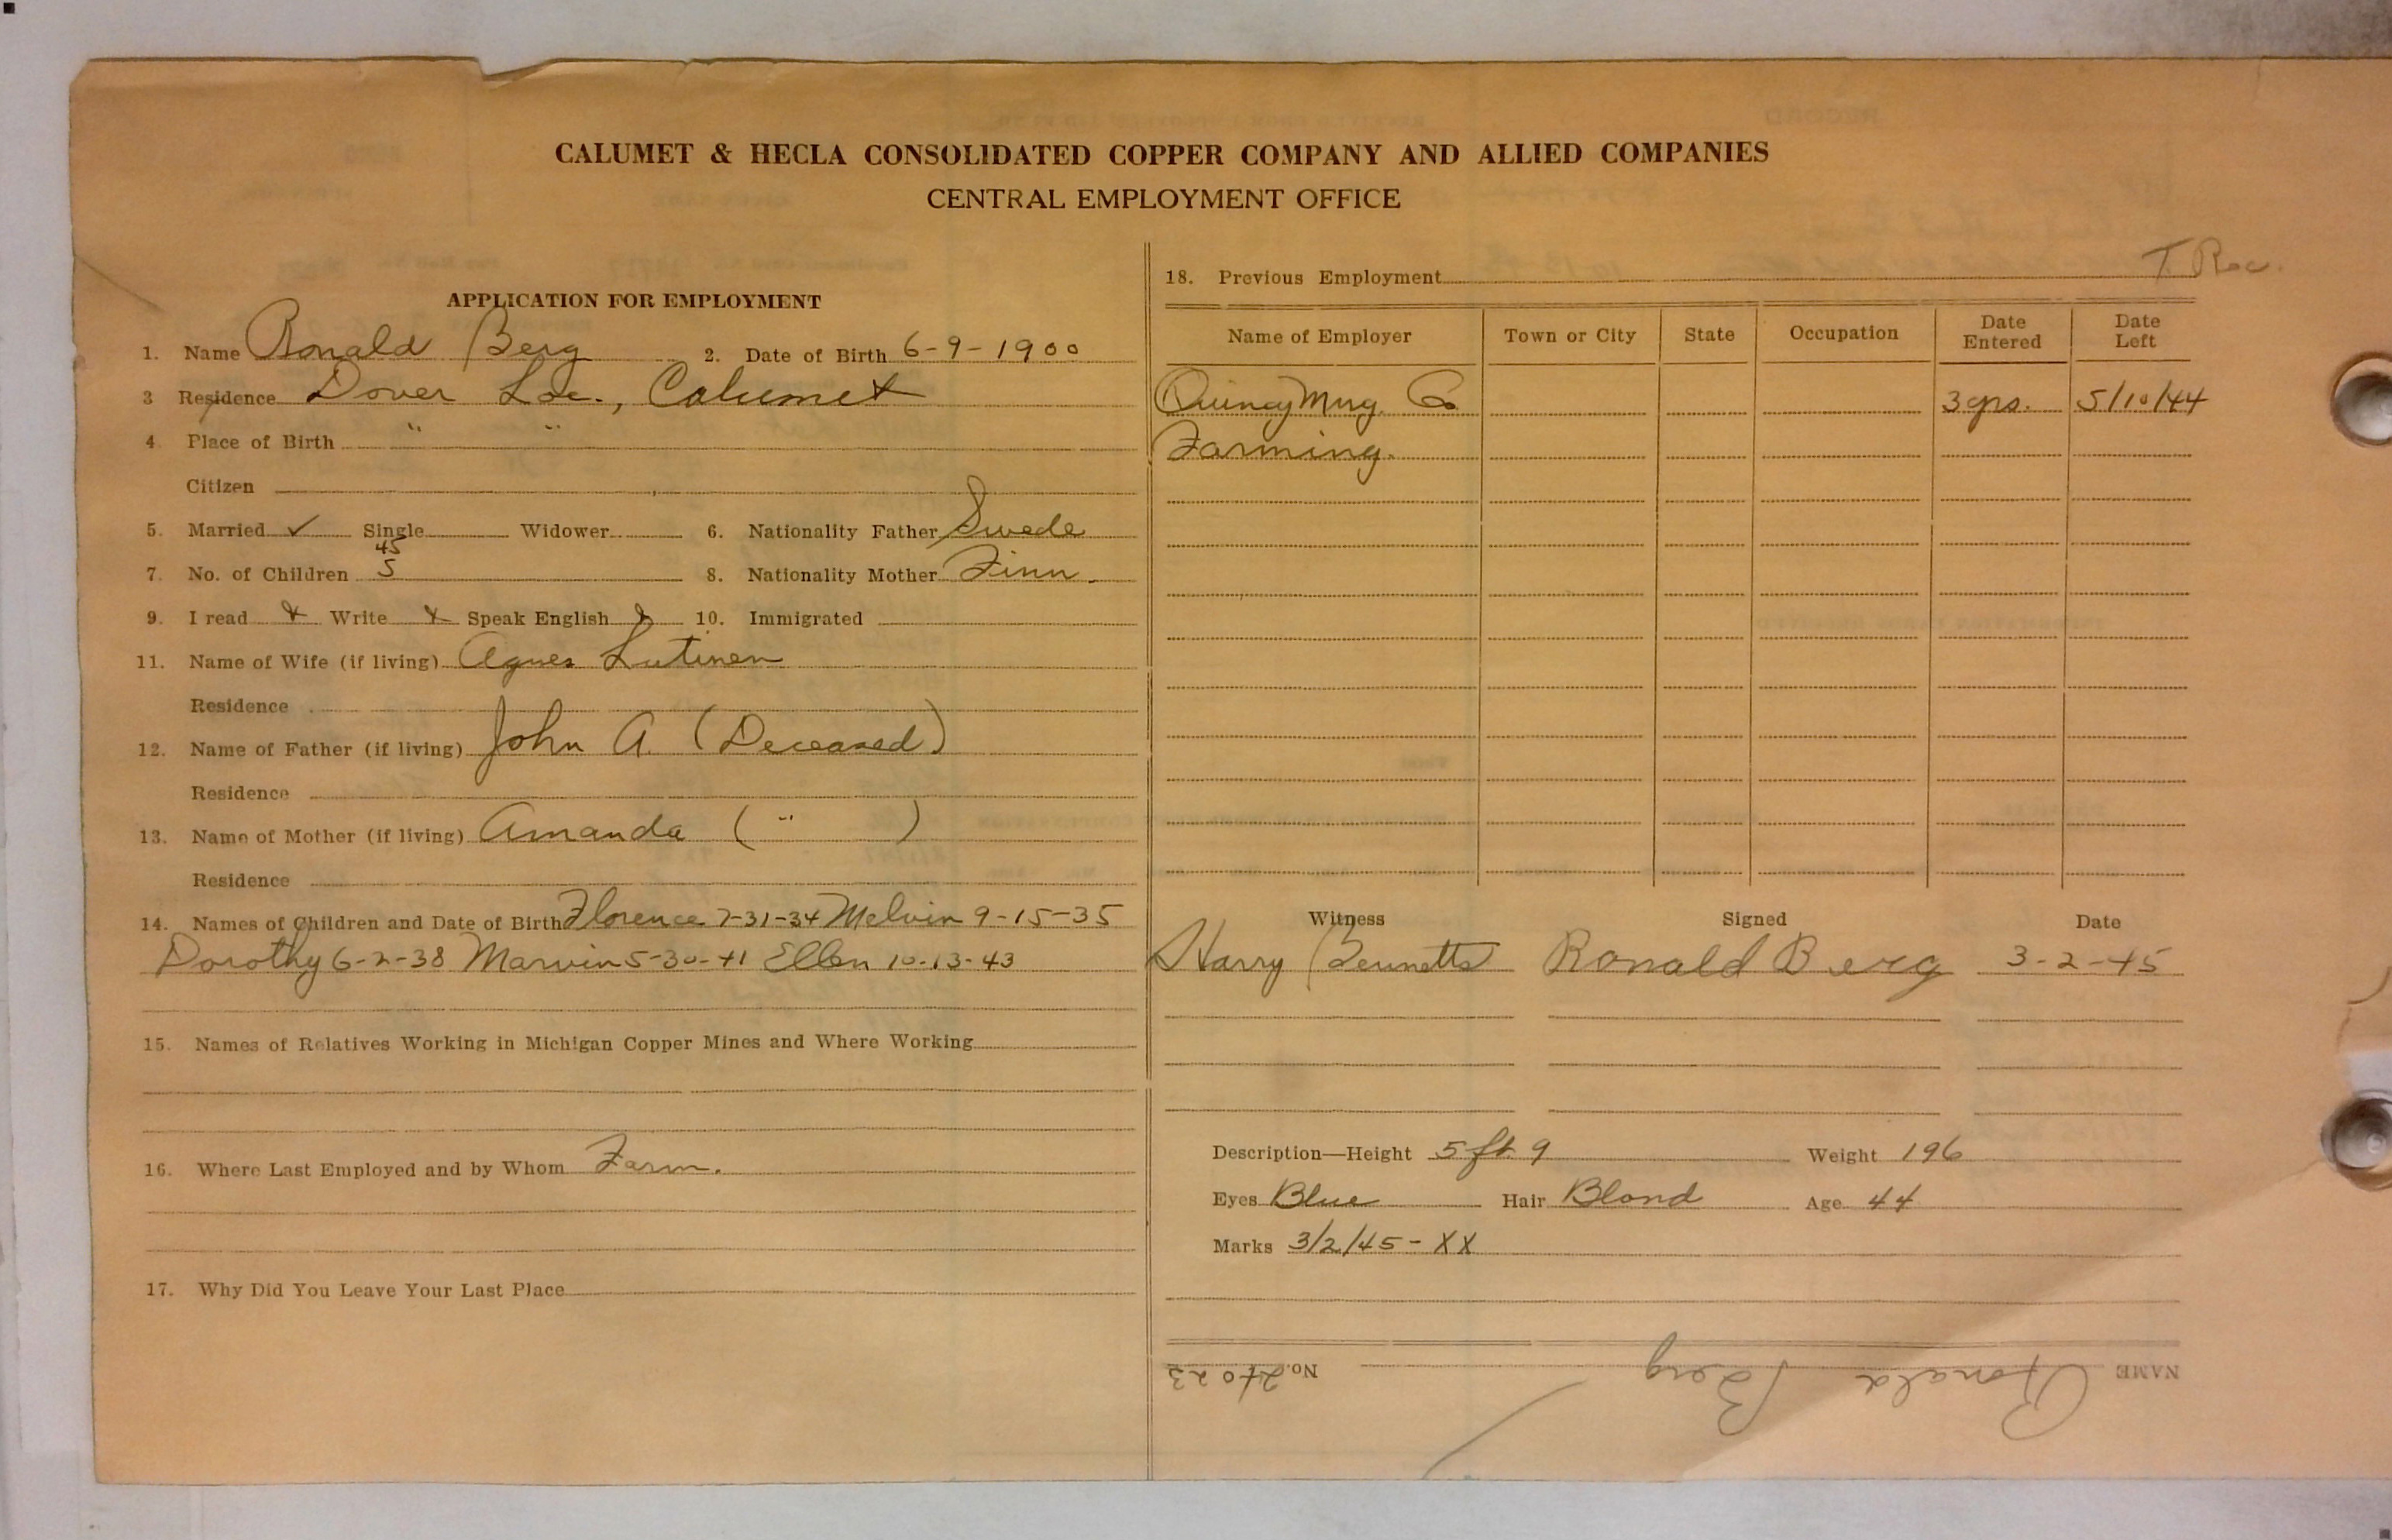 CALUMET & HECLA CONSOLIDATED COPPER COMPANY AND ALLIED COMPANIES
CENTRAL EMPLOYMENT OFFICE
APPLICATION FOR EMPLOYMENT
1. Name Ronald Berg 2. Date of Birth 6-9-1900
3 Residence Dover Loc., Calumet
4 Place of Birth " "
Citizen
5. Married ✓ Single Widower 6. Nationality Father Swede
45
7. No. of Children 5 8. Nationality Mother Finn.
9. I read Write Speak English 10. Immigrated
11. Name of Wife (if living) Agnes Lutinen
Residence
12. Name of Father (if living) John A. (Deceased)
Residence
13. Name of Mother (if living) Amanda ( " )
Residence
14. Names of Children and Date of Birth Florence 7-31-34 Melvin 9-15-35
Dorothy 6-2-38 Marvin 5-30-41 Ellen 10-13-43
15. Names of Relatives Working in Michigan Copper Mines and Where Working
16. Where Last Employed and by Whom Farm.
17. Why Did You Leave Your Last Place
T. Roc.
18. Previous Employment
Name of Employer Town or City State Occupation Date Entered Date Left
Quincy Mng. Co 3 yrs. 5/10/44
Farming.
Witness Signed Date
Harry Bennetts Ronald Berg 3-2-45
Description—Height 5 ft 9 Weight 196
Eyes Blue Hair Blond Age 44
Marks 3/2/45 - XX
NAME Ronald Berg No. 24023